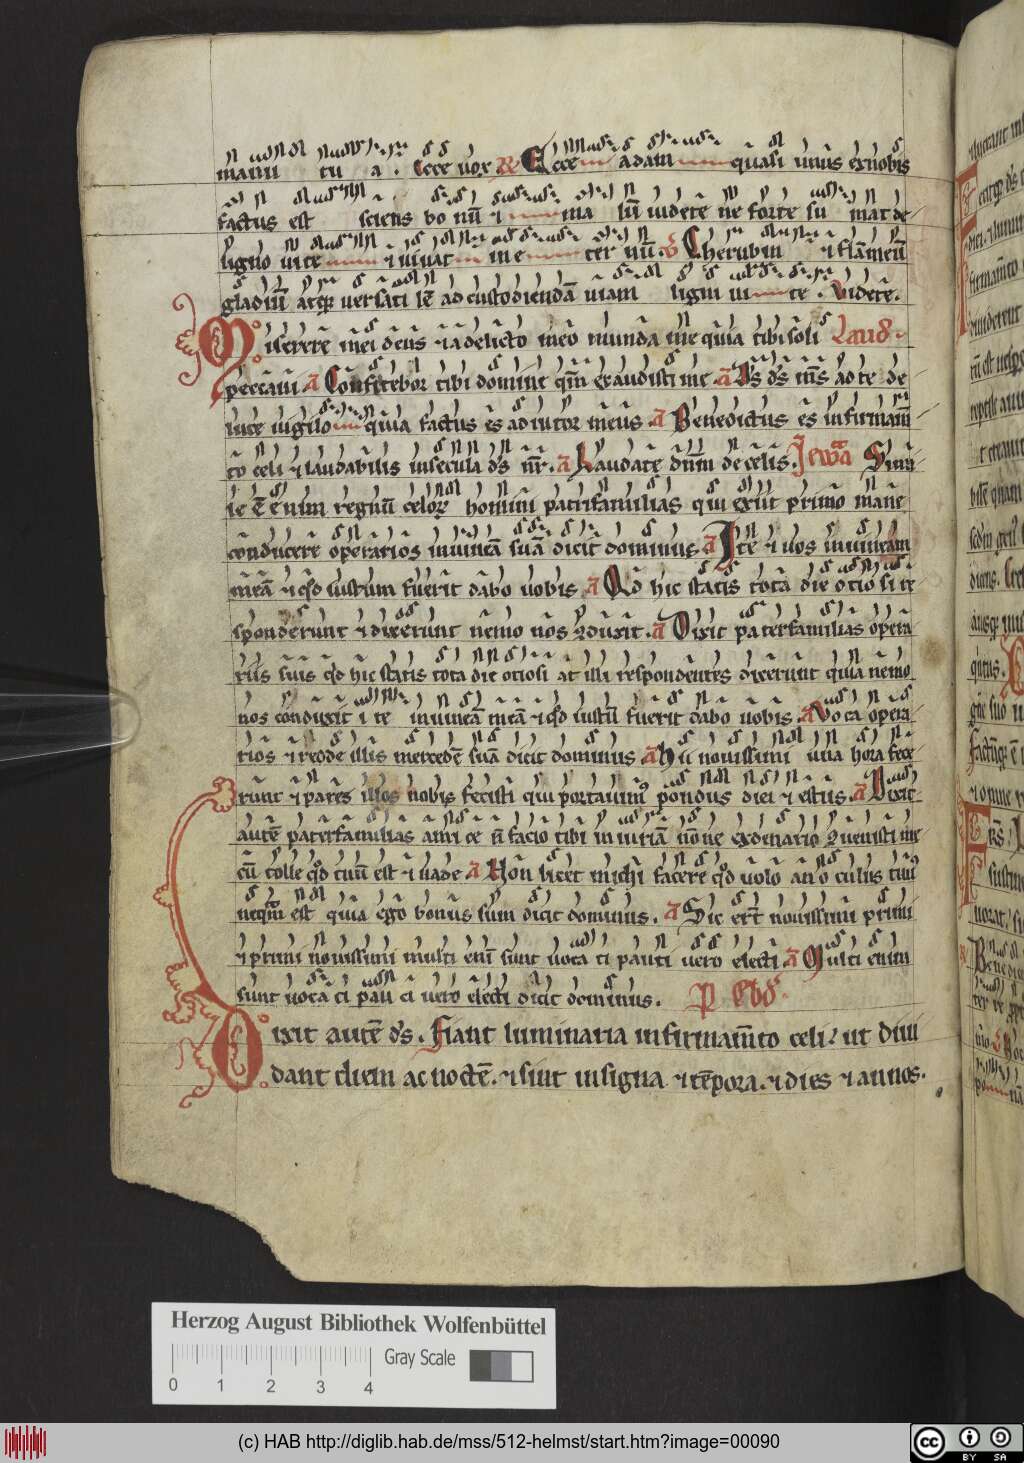 manu tu a . Ecce uox R Ecce adam quasi unus ex nobis
factus est sciens bonū ⁊ ma lū uidete ne forte su mat de
ligno uite ⁊ uiuat in e ter nū. V Cherubin ⁊ flāmeū
gladiū atq; uersatilē ad custodiendā uiam ligni ui te . Videte.
Miserere mei deus ⁊ a delicto meo munda me quia tibi soli Laud̄
peccaui A Confitebor tibi domine qm̄ exaudisti me. A Ds̄ ds̄ ms̄ ad te de
luce uigilo quia factus es adiutor meus. A Benedictus es in firmam̄
to celi ⁊ laudabilis in secula ds̄ nr̄. A Laudate dn̄m de celis. In ewa Simi
le ē enim regnū celorꝝ homini patrifamilias qui exiit primo mane
conducere operarios in uineā suā dicit dominus A Ite ⁊ uos in uineam
meā ⁊ qd̄ iustum fuerit dabo uobis A Qd̄ hic statis tota die otiosi re
sponderunt ⁊ dixerunt nemo nos 9duxit. A Dixit paterfamilias opera
riis suis qd̄ hic statis tota die otiosi at illi respondentes dixerunt quia nemo
nos conduxit ite in uineā meā ⁊ qd̄ iustū fuerit dabo uobis. A Voca opera
rios ⁊ redde illis mercedē suā dicit dominus A Hii nouissimi una hora fece
runt ⁊ pares illos nobis fecisti qui portauim9 pondus diei ⁊ estus. A Dixit
autē paterfamilias amice n̄ facio tibi iniuriā nōne ex denario 9uenisti me
cū tolle qd̄ tuū est ⁊ uade A Non licet michi facere qd̄ uolo an oculus tuus
neqm̄ est quia ego bonus sum dicit dominus. A Sic erūt nouissimi primi
⁊ primi nouissimi multi eni sunt uocati pauci uero electi A Multi enim
sunt uocati pauci uero electi dicit dominus. P ebd̄
Dixit autē ds̄. Fiant luminaria in firmam̄to celi ut diui
dant diem ac noctē. ⁊ sint in signa ⁊ tēpora. ⁊ dies ⁊ annos.
Herzog August Bibliothek Wolfenbüttel
0 1 2 3 4 Gray Scale
(c) HAB http://diglib.hab.de/mss/512-helmst/start.htm?image=00090
cc BY SA